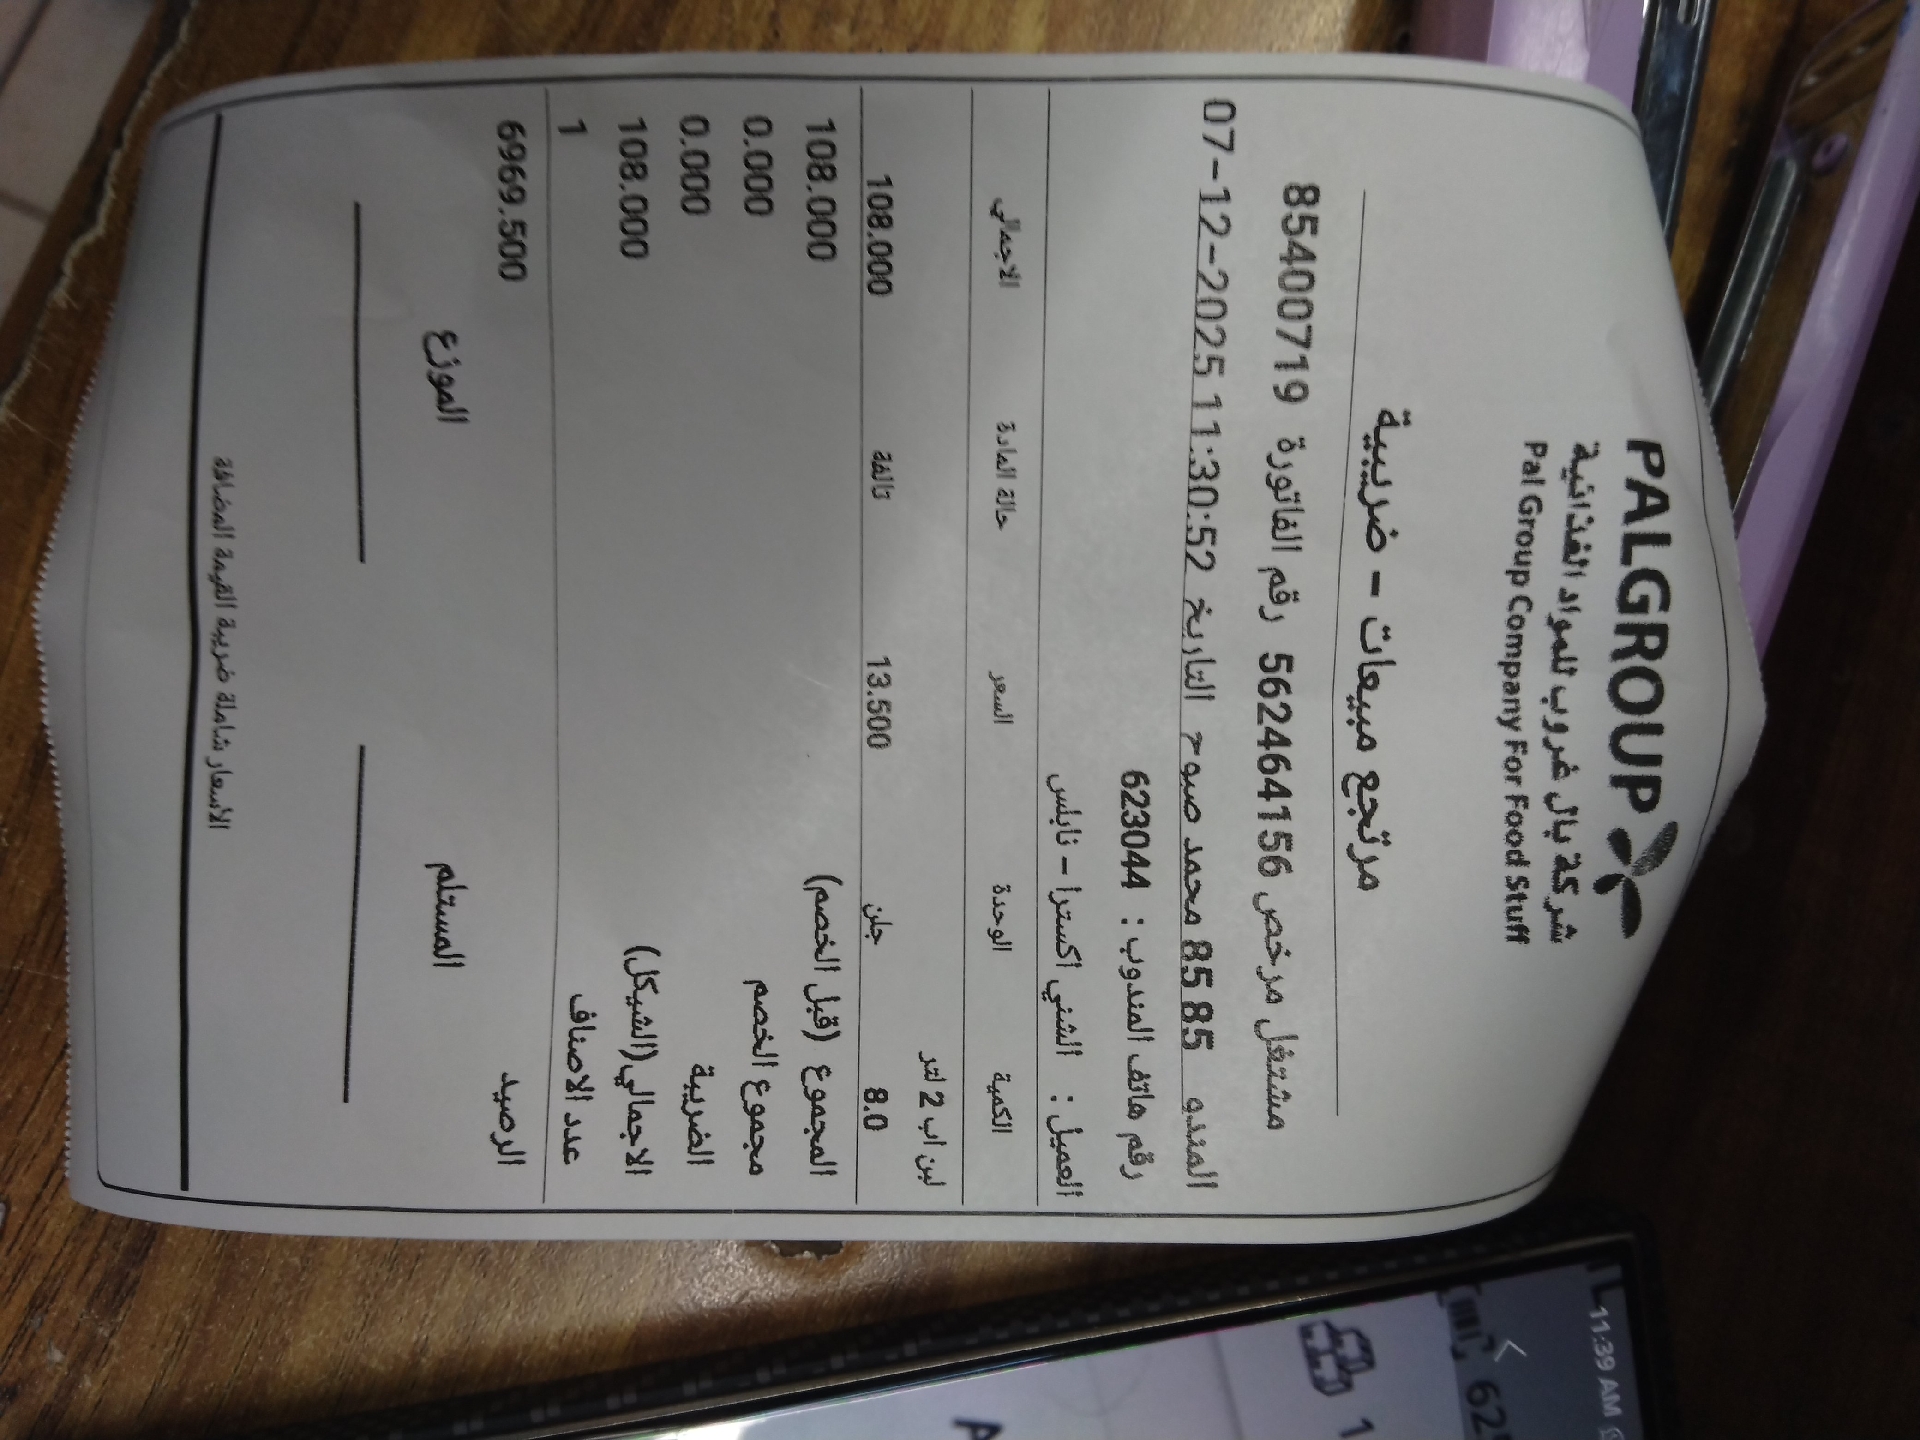 PALGROUP
شركة بال غروب للمواد الغذائية
Pal Group Company For Food Stuff
مرتجع مبيعات - ضريبية
مشتغل مرخص 562464156 رقم الفاتورة 85400719
المندو 8585 محمد صبوح التاريخ 07-12-2025 11:30:52
رقم هاتف المندوب : 623044
العميل : الشني اكسترا - نابلس
الكمية الوحدة السعر حالة المادة الاجمالي
لبن اب 2 لتر
8.0 جلن 13.500 تالفة 108.000
المجموع (قبل الخصم) 108.000
مجموع الخصم 0.000
الضريبة 0.000
الاجمالي(الشيكل) 108.000
عدد الاصناف 1
الرصيد 6969.500
المستلم الموزع
الاسعار شاملة ضريبة القيمة المضافة
11:39 AM
1